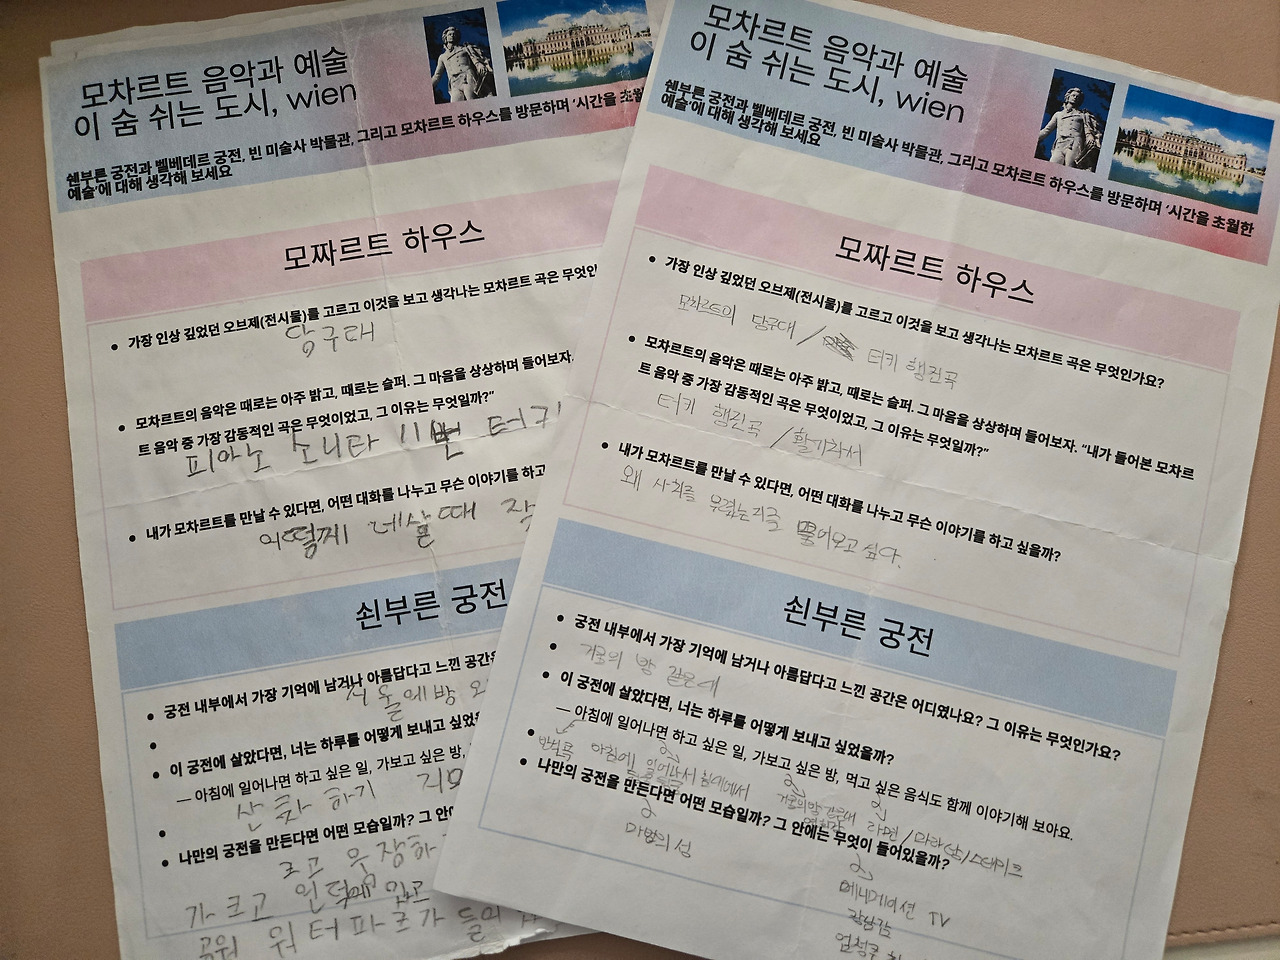 모차르트 음악과 예술
이 숨 쉬는 도시, wien
쉔부른 궁전과 벨베데르 궁전, 빈 미술사 박물관, 그리고 모차르트 하우스를 방문하며 '시간을 초월
예술'에 대해 생각해 보세요
모짜르트 하우스
가장 인상 깊었던 오브제(전시물)를 고르고 이것을 보고 생각나는 모차르트 곡은 무엇인
당구대
모차르트의 음악은 때로는 아주 밝고, 때로는 슬퍼. 그 마음을 상상하며 들어보자.
트 음악 중 가장 감동적인 곡은 무엇이었고, 그 이유는 무엇일까?"
피아노 소나타 11번 터키
내가 모차르트를 만날 수 있다면, 어떤 대화를 나누고 무슨 이야기를 하고
어떻게 네살때 작
쇤부른 궁전
궁전 내부에서 가장 기억에 남거나 아름답다고 느낀 공간은
이 궁전에 살았다면, 너는 하루를 어떻게 보내고 싶었을
— 아침에 일어나면 하고 싶은 일, 가보고 싶은 방,
산책 하기
나만의 궁전을 만든다면 어떤 모습일까? 그 안에
로고 웅장하
가 크고 언덕에 있고
공원 워터파크가 들어
모차르트 음악과 예술
이 숨 쉬는 도시, wien
쉔부른 궁전과 벨베데르 궁전, 빈 미술사 박물관, 그리고 모차르트 하우스를 방문하며 '시간을 초월한
예술'에 대해 생각해 보세요
모짜르트 하우스
가장 인상 깊었던 오브제(전시물)를 고르고 이것을 보고 생각나는 모차르트 곡은 무엇인가요?
모차르트의 당구대 / 터키 행진곡
모차르트의 음악은 때로는 아주 밝고, 때로는 슬퍼. 그 마음을 상상하며 들어보자. "내가 들어본 모차르
트 음악 중 가장 감동적인 곡은 무엇이었고, 그 이유는 무엇일까?"
터키 행진곡 / 활기차서
내가 모차르트를 만날 수 있다면, 어떤 대화를 나누고 무슨 이야기를 하고 싶을까?
왜 사치를 부렸는지를 물어보고 싶다.
쇤부른 궁전
궁전 내부에서 가장 기억에 남거나 아름답다고 느낀 공간은 어디였나요? 그 이유는 무엇인가요?
거울의 방 같은데
이 궁전에 살았다면, 너는 하루를 어떻게 보내고 싶었을까?
— 아침에 일어나면 하고 싶은 일, 가보고 싶은 방, 먹고 싶은 음식도 함께 이야기해 보아요.
아침에 일어나서 침대에서
거울의방 같은데 라면 / 마라샹 / 스테이크
나만의 궁전을 만든다면 어떤 모습일까? 그 안에는 무엇이 들어있을까?
마법의 성
애니메이션 TV
장난감
엄청